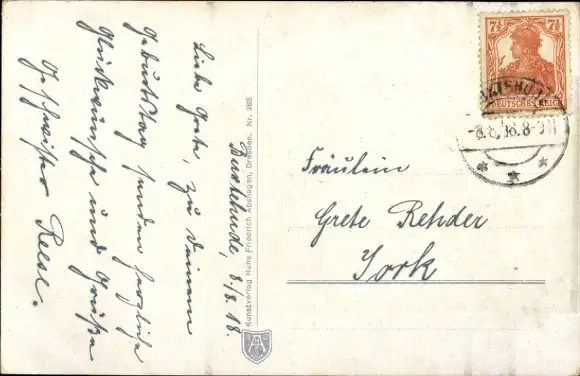 Buxtehude, 8.8.18.
Liebe Grete, zu Deinem
Geburtstag senden herzliche
Glückwünsche und Grüße
Geschwister Reese.
Kunstverlag Hans Friedrich Abshagen, Dresden. Nr. 285
7½ 7½
DEUTSCHES REICH
BUXTEHUDE
-8.8.18.8-9V
Fräulein
Grete Rehder
York